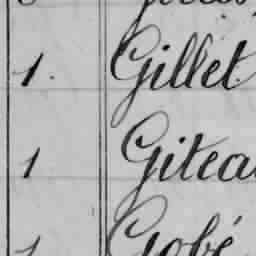 1. Gillet
1 Gitea
1 Gobé